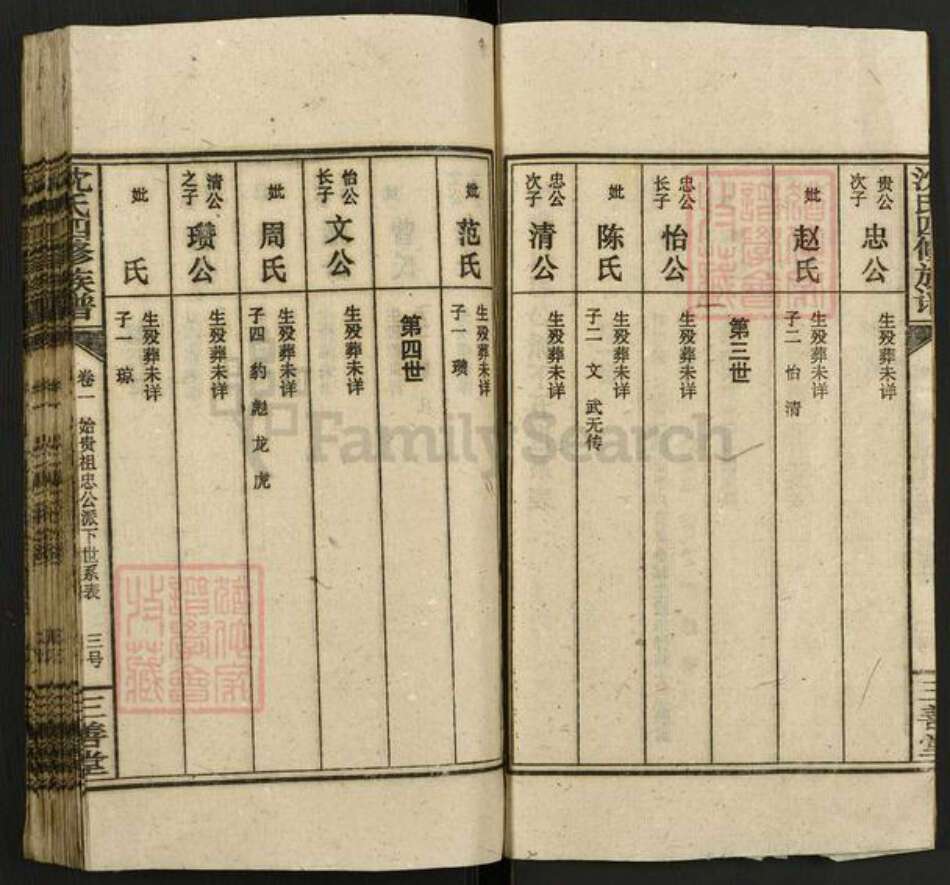 沈氏四修族谱
贵公次子 忠公 生殁葬未详
妣 赵氏 生殁葬未详 子二 怡 清
第三世
忠公长子 怡公 生殁葬未详
妣 陈氏 生殁葬未详 子二 文 武无传
忠公次子 清公 生殁葬未详
妣 范氏 生殁葬未详 子一 瓒
第四世
怡公长子 文公 生殁葬未详
妣 周氏 生殁葬未详 子四 豹 彪 龙 虎
清公之子 瓒公 生殁葬未详
妣 氏 生殁葬未详 子一 琼
沈氏四修族谱
卷一 始贵祖忠公派下世系表
三号
三善堂
三善堂
FamilySearch